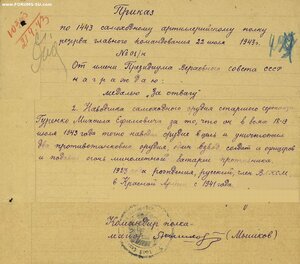 FORUMS-SU.COM
Приказ
по 1443 самоходному артиллерийскому полку
резерва главного командования 22 июля 1943г.
№ 01/н
От имени Президиума Верховного совета СССР
награждаю:
медалью "За отвагу"
2. Наводчика самоходного орудия старшего сержанта
Гуренко Михаила Ефимовича за то, что он в боях 18-19
июля 1943 года точно наводил орудие в цель и уничтожил
два противотанковых орудия, один взвод солдат и офицеров
и подавил огонь минометной батареи противника.
1923 года рождения, русский, член ВЛКСМ,
в Красной Армии с 1941 года.
Командир полка-
майор